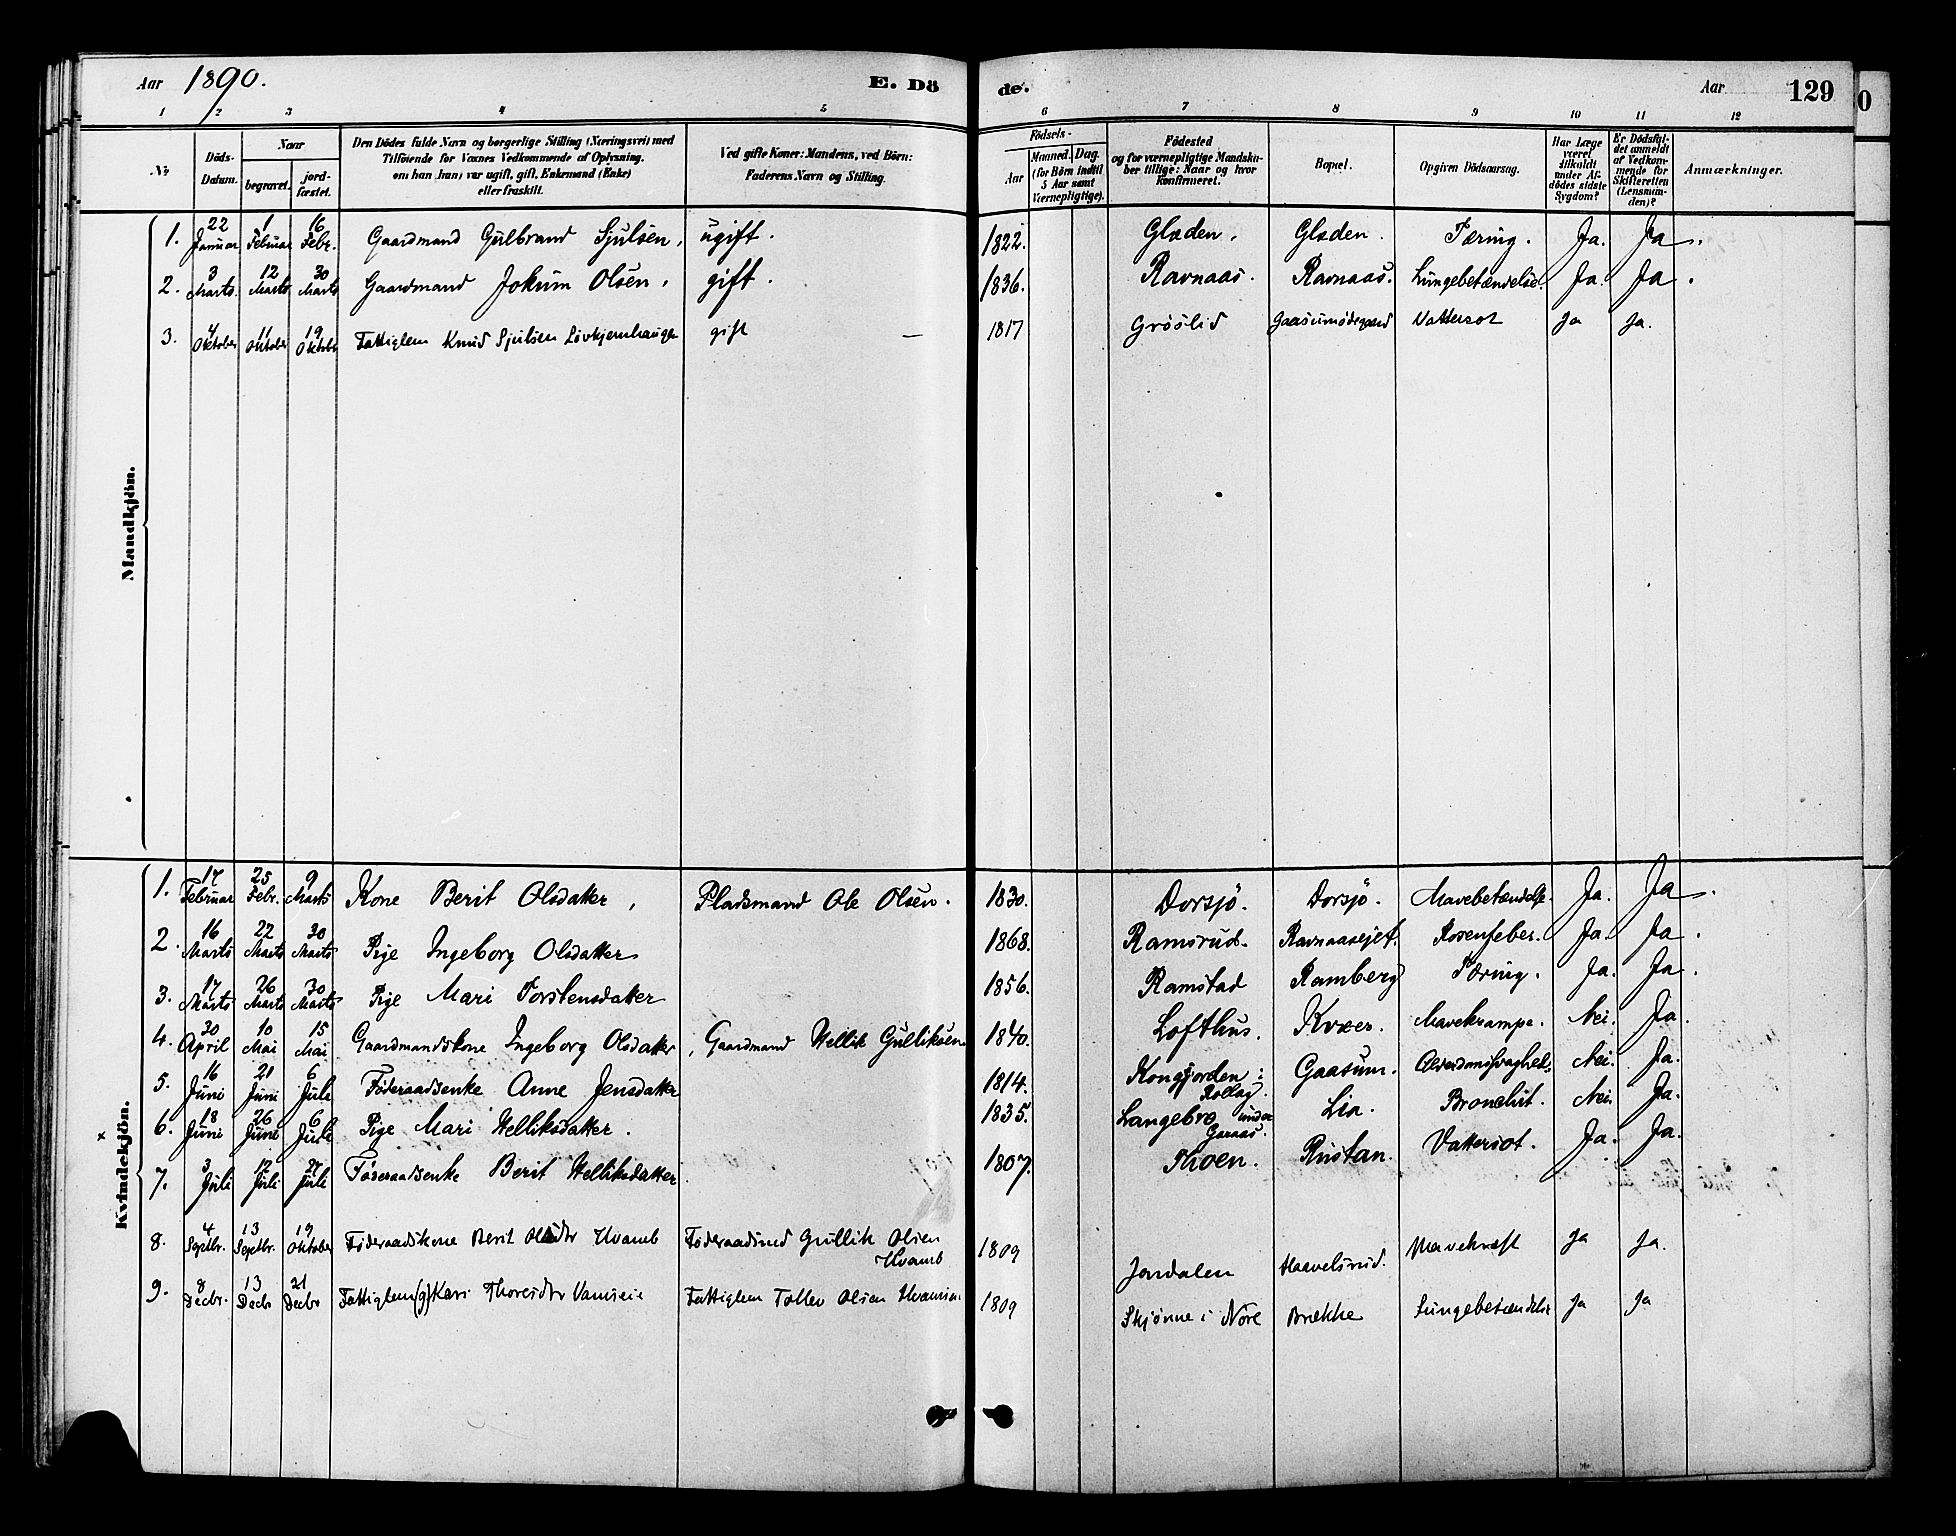 Aar 1890. E. Dö de. Aar 129
0
1 2 3 4 5 6 7 8 9 10 11 12
No
Döds-
Datum.
Naar
begravet.
jord-
fæstet.
Den Dödes fulde Navn og borgerlige Stilling (Næringsvei) med
Tilföiende for Voxnes Vedkommende af Oplysning,
om han (hun) var ugift, gift, Enkemand (Enke)
eller fraskilt.
Ved gifte Koner: Mandens, ved Börn:
Faderens Navn og Stilling.
Födsels-
Aar
Maaned. Dag.
(for Börn indtil
5 Aar samt
Værnepligtige).
Födested
og for værnepligtige Mandska-
ber tillige: Naar og hvor
Konfirmeret.
Bopæl.
Opgiven Dödsaarsag.
Har Læge
været
tilkaldt
under Af-
dödes sidste
Sygdom?
Er Dödsfal-
det anmeldt
af Vedkom-
mende for
Skifteretten
(Lensman-
den)?
Anmærkninger.
Mandkjön.
1. 22 Januar 1 Februar 16 Febr. Gaardmand Gulbrand Sjulsen, ugift. 1822. Glæden. Glæden. Tæring. Ja. Ja.
2. 3 Marts. 12 Marts 30 Marts Gaardmand Jokum Olsen, gift. 1836. Ravnaas. Ravnaas. Lungebetændelse. Ja. Ja.
3. 4 Oktober 11 Oktober 19 Oktobr Fattiglem Knud Sjulsen gift — 1817 Gröslid Vattersot Ja Ja.
Kvindekjön.
1. 17 Februar 25 Febr. 9 Marts Kone Berit Olsdatter, Pladsmand Ole Olsen. 1830. Dorsjö. Dorsjö. Mavebetændelse. Ja. Ja.
2. 16 Marts 22 Marts 30 Marts Pige Ingeborg Olsdatter 1868. Ramsrud. Ravnaasejet. Rosenfeber. Ja. Ja.
3. 17 Marts 26 Marts 30 Marts Pige Mari Torstensdatter 1856. Ramstad Ramberg Tæring. Ja. Ja.
4. 30 April 10 Mai 15 Mai Gaardmandskone Ingeborg Olsdatter, Gaardmand Hellik Gulliksen 1840. Lofthus. Kværn. Mavekrampe. Nei. Ja.
5. 16 Juni 21 Juni 6 Juli Föderaadsenke Anne Jensdatter 1814. Kongsjorden: Rollag. Gaasum. Alderdomssvaghed. Nei. Ja.
x 6. 18 Juni 26 Juni 6 Juli Pige Mari Helliksdatter. 1835. Langebro under Garaas. Lia. Bronchit. Nei. Ja.
7. 3 Juli 12 Juli 27 Juli Föderaadsenke Berit Helliksdatter 1807. Thoen. Rustan. Vattersot. Ja. Ja.
8. 4 Septbr. 13 Septbr. 19 Oktober Föderaadskone Berit Olsdtr Hvamb Föderaadsmd Gullik Olsen
Hvamb 1809 Jondalen Haavelsrud. Mavekræft Ja Ja.
9. 8 Decbr. 13 Decbr 21 Decbr Fattiglem (g) Kari Thoresdtr Fattiglem Tollev Olsen 1809 Skjönne i Nore Brække Lungebetændelse Ja Ja